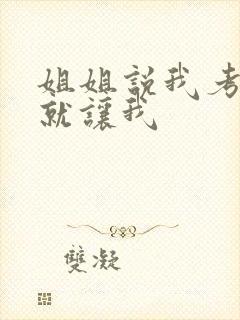 姐姐説我考
就讓我
雙凝